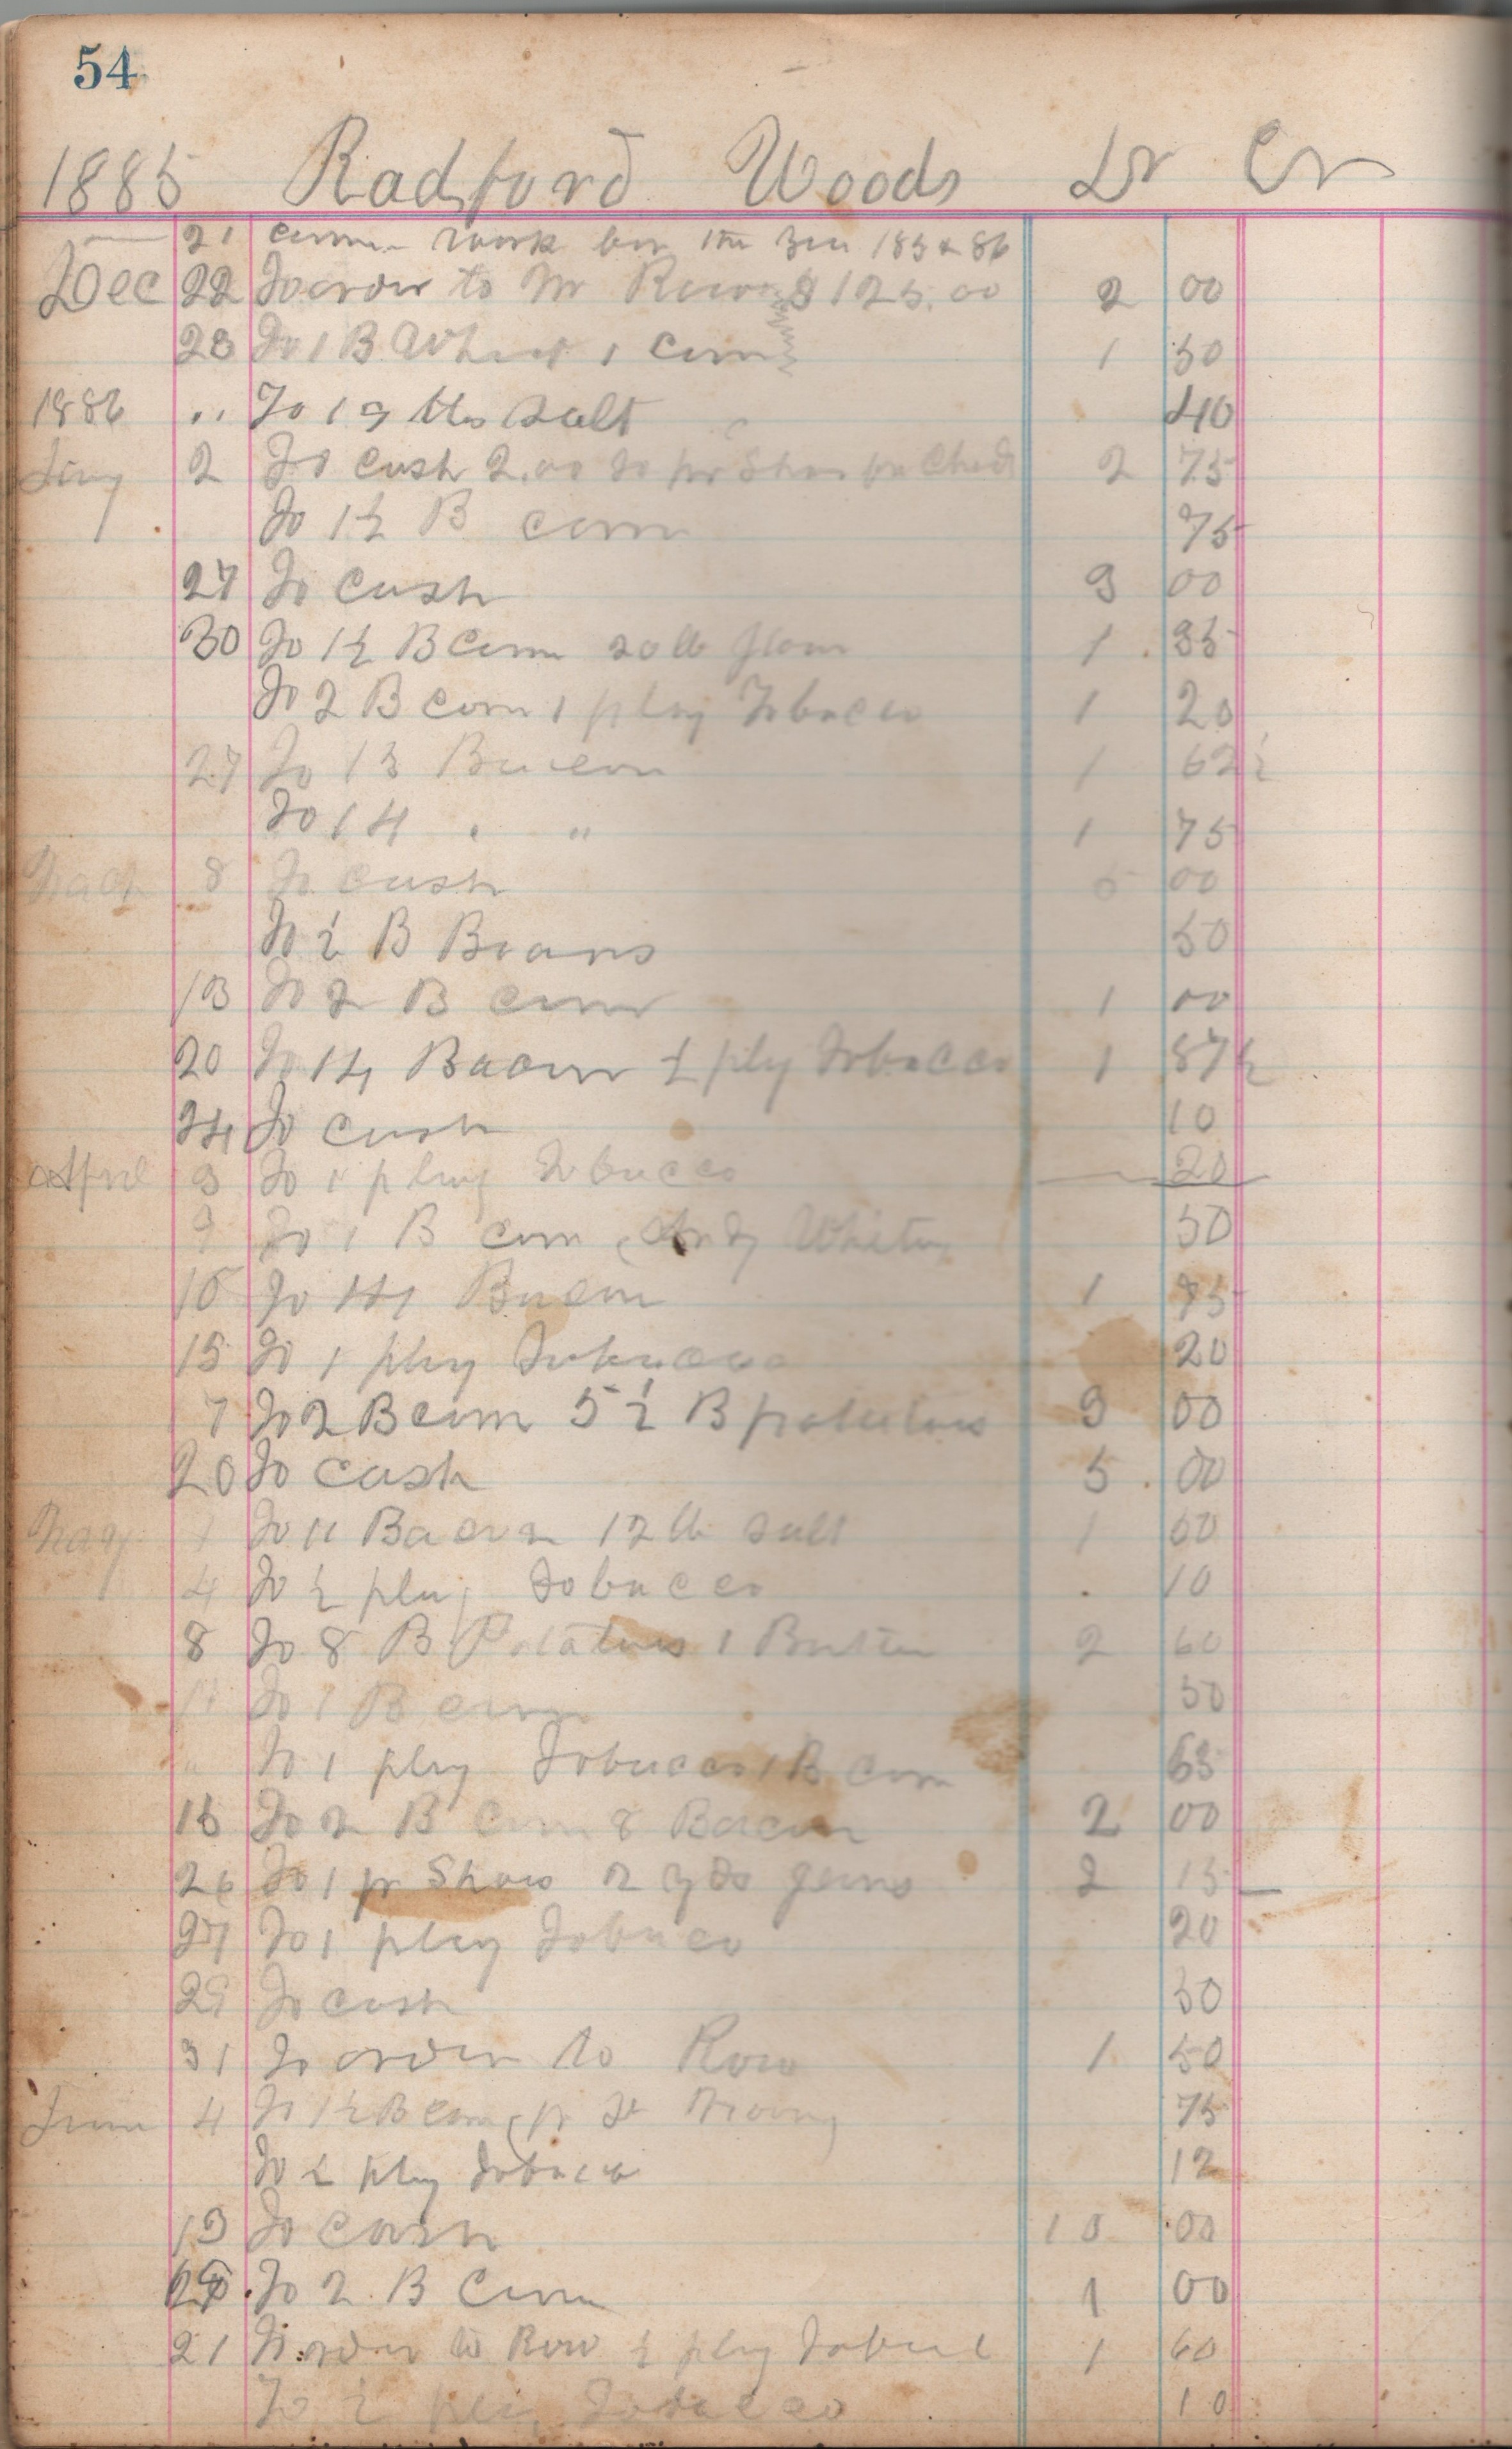 54
1885 Radford Woods Dr Cr
21 work 1885 & 86
Dec 22 To order to Mr $125.00 2 00
23 To 1 B Wheat 1 corn 1 50
1886 " To 19 lbs Salt 40
2 To cash 2.00 To pr 2 75
To 1½ B corn 75
27 To cash 3 00
30 To 1½ B corn 20 lb flour 1 35
To 2 B corn 1 plug Tobacco 1 20
27 To 13 Bacon 1 62½
To 14 " " 1 75
8 To cash 5 00
To ½ B Beans 50
13 To 2 B corn 1 00
20 To 14 Bacon ½ plug Tobacco 1 87½
24 To cash 10
April 3 To 1 plug Tobacco 20
9 To 1 B corn 50
To 14 Bacon 1
15 To 1 plug Tobacco 20
7 To 2 B corn 5½ B potatoes 3 00
20 To cash 5 00
May 1 To 11 Bacon 12 lb salt 1 60
4 To ½ plug Tobacco 10
8 To 8 B Potatoes 1 2 60
To 1 B corn 50
" To 1 plug Tobacco 1 B corn 65
To 2 B corn 8 Bacon 2 00
26 To 1 pr Shoes 2 yds 2 15
27 To 1 plug Tobaco 20
29 To cash 50
31 To order to Row 1 50
June 4 To 1½ B corn 75
To ½ plug Tobacco 12
13 To cash 10 00
To 2 B Corn 1 00
21 To order to Row ½ plug 1 60
To ½ plug Tobacco 10